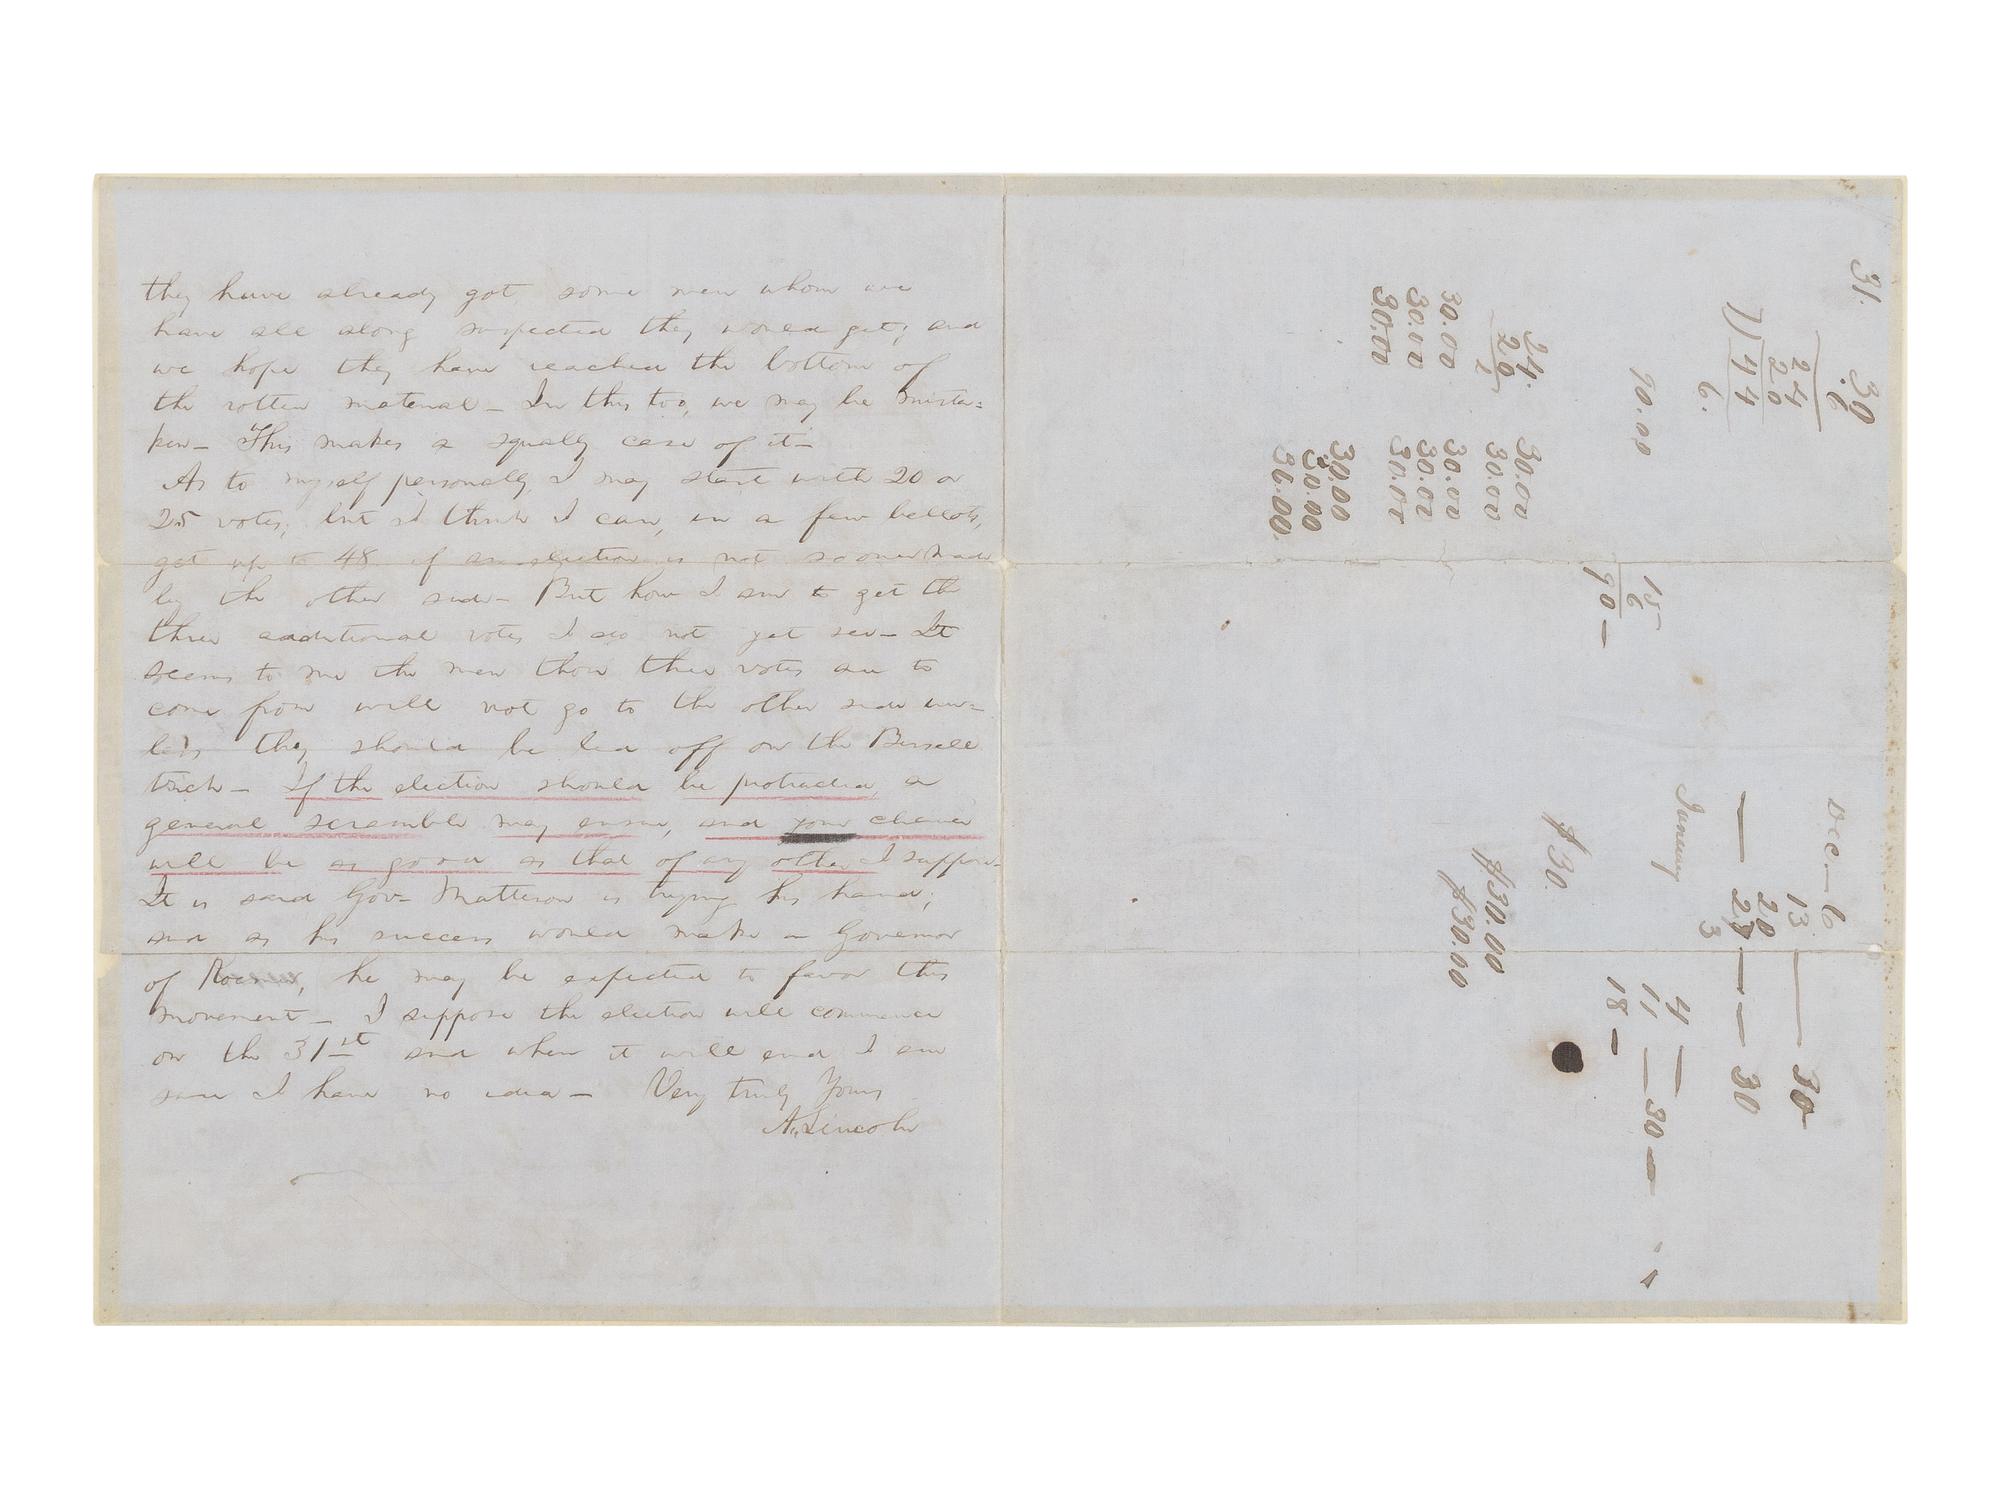 they have already got, some men whom we
have all along suspected they would get; and
we hope they have reached the bottom of
the rotten material — In this too, we may be mista=
ken — This makes a squally case of it —
As to myself personally, I may start with 20 or
25 votes, but I think I can, in a few ballots,
get up to 48 if an election is not sooner made
by the other side — But how I am to get the
three additional votes I do not yet see — It
seems to me the men those three votes are to
come from will not go to the other side un=
less they should be led off on the Bissell
trick — If the election should be protracted, a
general scramble may ensue, and your chance
will be as good as that of any other I suppose —
It is said Gov — Matteson is trying his hand;
and as his success would make a Governor
of , he may be expected to favor this
movement — I suppose the election will commence
on the 31st and when it will end I am
sure I have no idea — Very truly Yours
A. Lincoln
31.
30
6
24
20
1)44
44
6.
70.00
24.
20
30.00
30.00
30.00
30.00
30.00
30.00
30.00
30.00
30.00
30.00
36.00
15
6
90 —
Dec — 6
13 — 30
20
— 30
3
January
4 —
11 — 30 —
18 —
$30.
$30.00
$30.00